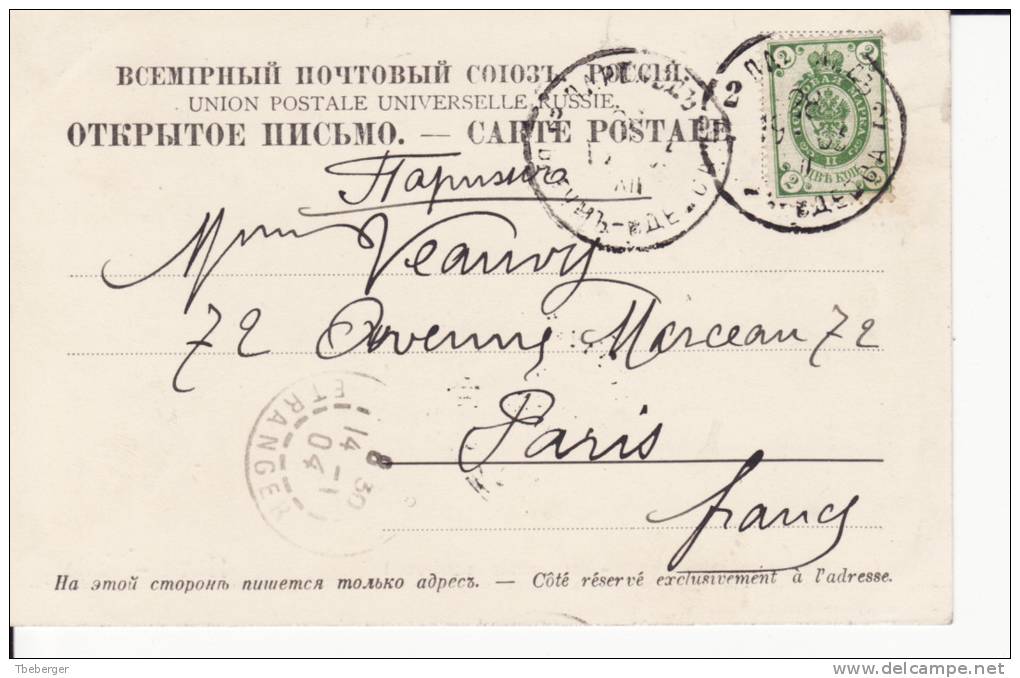 ВСЕМІРНЫЙ ПОЧТОВЫЙ СОЮЗЪ. РОССІЯ.
UNION POSTALE UNIVERSELLE RUSSIE.
ОТКРЫТОЕ ПИСЬМО. — CARTE POSTALE
2 2
ПОЧТОВАЯ МАРКА
ДВѢ КОП.
2 2
Парижъ
Mme
72 Avenue Marceau 72
Paris
france
ETRANGER
14 - 1
04
8 30
На этой сторонѣ пишется только адресъ. — Côté réservé exclusivement à l'adresse.
Tbeberger
delcampe.net